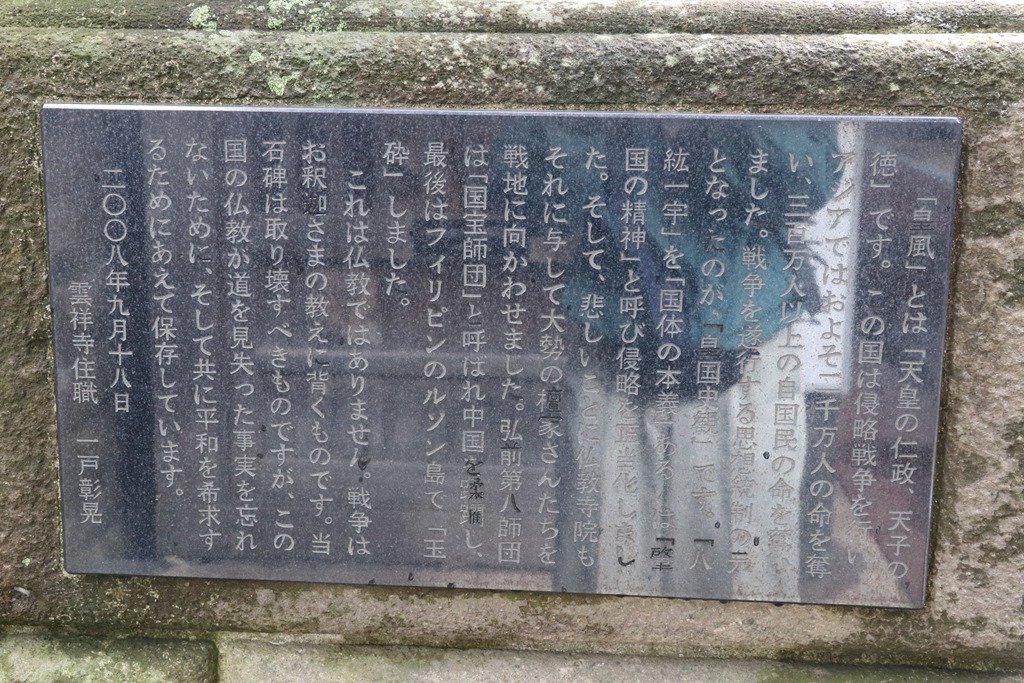 「皇風」とは「天皇の仁政、天子の
徳」です。この国は侵略戦争を い
アジアではおよそ二千万人の命を奪
い、三百万人以上の自国民の命を奪い
ました。戦争を遂行する思想統制の元
となったのが、「皇国史観」です。「八
紘一宇」を「国体の本義」あるいは「
国の精神」と呼び侵略を正当化しまし
た。そして、悲しいことに仏教寺院も
それに与して大勢の檀家さんたちを
戦地に向かわせました。弘前第八師団
は「国宝師団」と呼ばれ中国を し、
最後はフィリピンのルソン島で「玉
砕」しました。
これは仏教ではありません。戦争は
お釈迦さまの教えに背くものです。当
石碑は取り壊すべきものですが、この
国の仏教が道を見失った事実を忘れ
ないために、そして共に平和を希求す
るためにあえて保存しています。
二〇〇八年九月十八日
雲祥寺住職 一戸彰晃